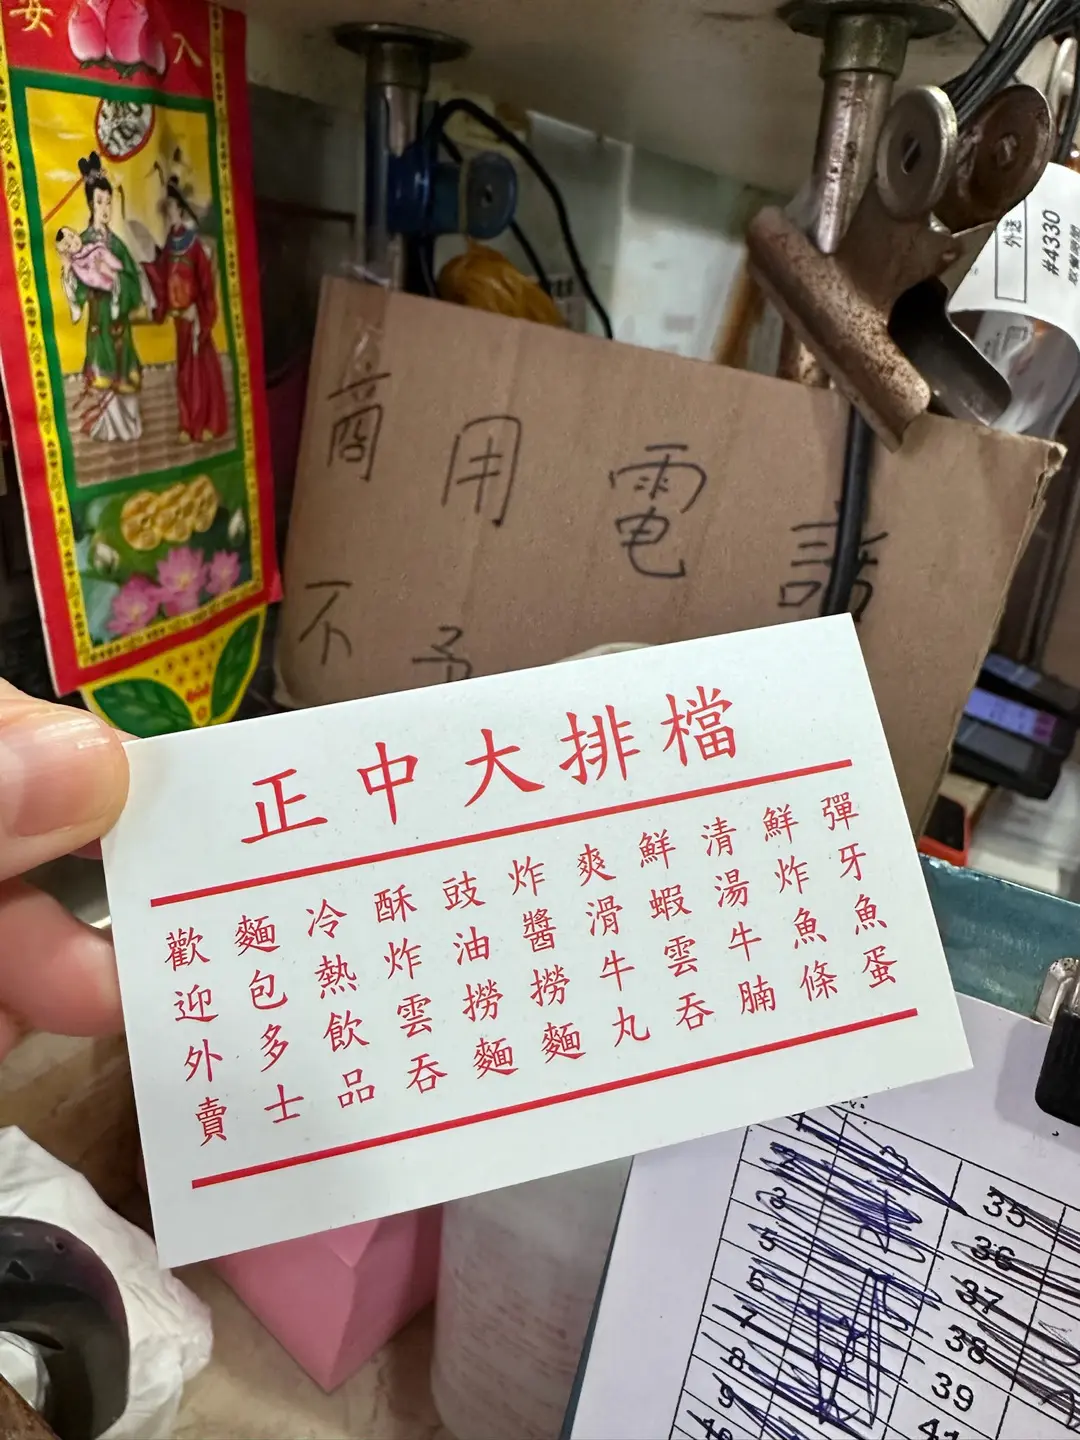 入
安
外送
#4330
商用電話
不予
正中大排檔
彈牙魚蛋
鮮炸魚條
清湯牛腩
鮮蝦雲吞
爽滑牛丸
炸醬撈麵
豉油撈麵
酥炸雲吞
冷熱飲品
麵包多士
歡迎外賣
3
5
6
7
8
9
35
36
37
38
39